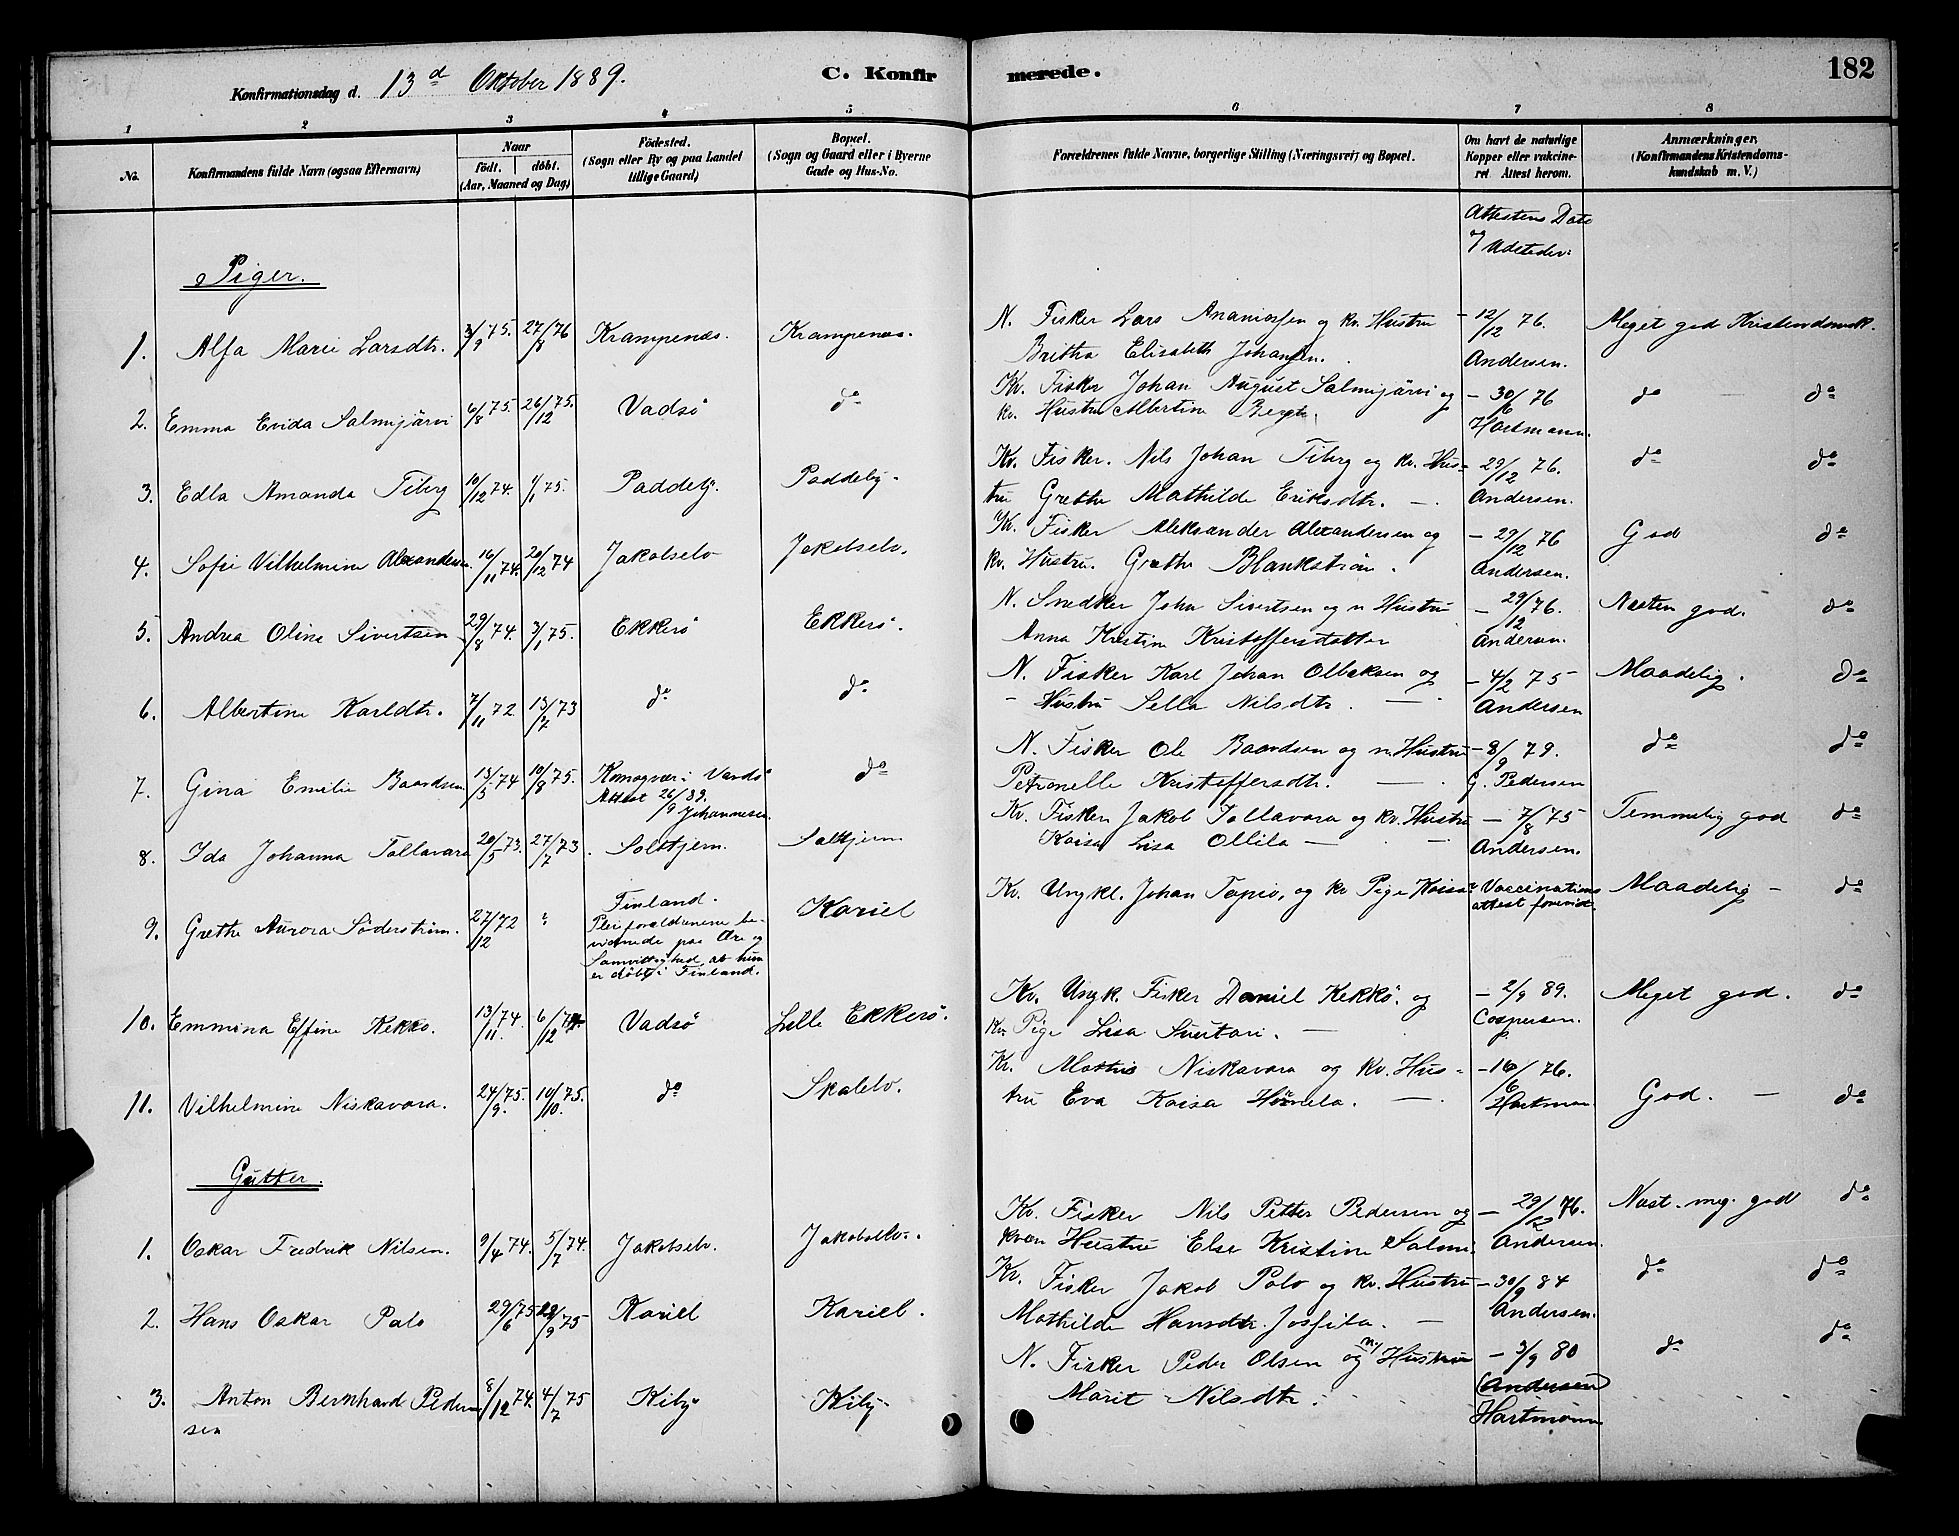 Konfirmationsdag d. 13d Oktober 1889.
C. Konfirmerede.
182
1 2 3 4 5 6 7 8
No.
Konfirmandens fulde Navn (ogsaa Efternavn)
Naar
födt. döbt.
(Aar, Maaned og Dag)
Födested.
(Sogn eller By og paa Landet
tillige Gaard)
Bopæl.
(Sogn og Gaard eller i Byerne
Gade og Hus-No.
Forældrenes fulde Navne, borgerlige Stilling (Næringsvei) og Bopæl.
Om havt de naturlige
Kopper eller vakcine-
ret. Attest herom.
Anmærkninger,
(Konfirmandens Kristendoms-
kundskab m. V.)
Attestens Dato
Udsteder:
Piger.
1. Alfa Marie Larsdtr. 3/9 75. 27/8 76 Krampenæs. Krampenæs. N. Fisker Lars Ananiassen og kv. Hustru - 12/12 76. Meget god Kristendomsk.
Britha Elisabeth Johansen. Andersen.
2. Emma Evida Salmijärvi 6/8 75. 26/12 75. Vadsö do Kv. Fisker Johan August Salmijärvi og - 30/6 76 do - do
kv. Hustru Albertine Hartmann.
3. Edla Amanda Tiberg 10/12 74. 1/1 75. Paddeby. Paddeby. Kv. Fisker. Nils Johan Tiberg og kv. Hus- 29/12 76. do do
tru Grethe Mathilde Eriksdtr. Andersen.
4. Sofie Vilhelmine Alexandersen 16/11 74. 20/12 74 Jakobselv Jakobselv. Kv. Fisker Aleksander Alexandersen og - 29/12 76 God do
kv. Hustru. Grethe Blankström. Andersen.
5. Andrea Olina Sivertsen 29/8 74. 3/1 75. Ekkerö Ekkerö. N. Snedker John Sivertsen og n Hustru - 29/12 76. Næsten god. do
Anna Kristine Kristoffersdatter Andersen.
6. Albertine Karldtr. 7/11 72 13/7 73 do do N. Fisker Karl Johan Olbeksen og - 4/2 75 Maadelig. do
- Hustru Sella Nilsdtr. Andersen
7. Gina Emilie Baardsen 13/5 74 10/8 75. Komagvær i Vardö do N. Fisker Ole Baardsen og n. Hustru - 8/9 79. do do
Attest 26/9 89. Johannesen. Petronelle Kristoffersdtr. G. Pedersen
8. Ida Johanna Tallavara 20/5 73. 27/7 73. Saltkjern. Saltkjern Kv. Fisker Jakob Tallavara og kv. Hustru - 7/8 75 Temmelig god do
Kaisa Lisa Ollila Andersen.
9. Grethe Aurora Söderström. 27/12 72 " Finland. Kariel Kv. Ungkl. Johan Tapio, og kv Pige Kaisa Vaccinations Maadelig - do
Pleieforældrene be- attest forevist.
vidnede paa Ære og
Samvittighed, at hun
er döbt i Finland.
10. Emmina Effine Kekko. 13/11 74. 6/12 74 Vadsö Lille Ekkerö. Kv. Ungk. Fisker Daniel Kekkö. og - 2/9 89. Meget god. do
kv. Pige Lisa Suutari. Caspersen.
11. Vilhelmine Niskavara. 24/9 75. 10/10 75. do Skalelv. Kv. Mathis Niskavara og kv. Hus- - 16/6 76. God. - do
tru Eva Kaisa Hartman
Gutter.
1. Oskar Fredrik Nilsen. 9/4 74. 5/7 74. Jakobselv. Jakobselv. Kv. Fisker Nils Petter Pedersen og - 29/12 76. Næst. meg. god do
kvæn Hustru Else Kristine Salmi. Andersen.
2. Hans Oskar Palo 29/6 75 /9 75 Kariel Kariel. Kv. Fisker Jakob Palo og kv. Hustru - 30/9 84 do do
Mathilde Hansdtr. Josfila. Andersen.
3. Anton Bernhard Peder- 8/12 74. 4/7 75 Kiby Kiby N. Fisker Peder Olsen og n/ Hustru - 3/9 80 do do
sen Marit Nilsdtr. (Andersen)
Hartmann